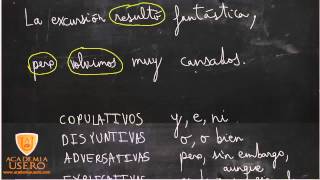 La excursión resultó fantástica,
pero volvimos muy cansados.
COPULATIVOS y, e, ni
DISYUNTIVAS o, o bien
ADVERSATIVAS pero, sin embargo,
aunque
EXPLICATIVAS
ACADEMIA
USERO